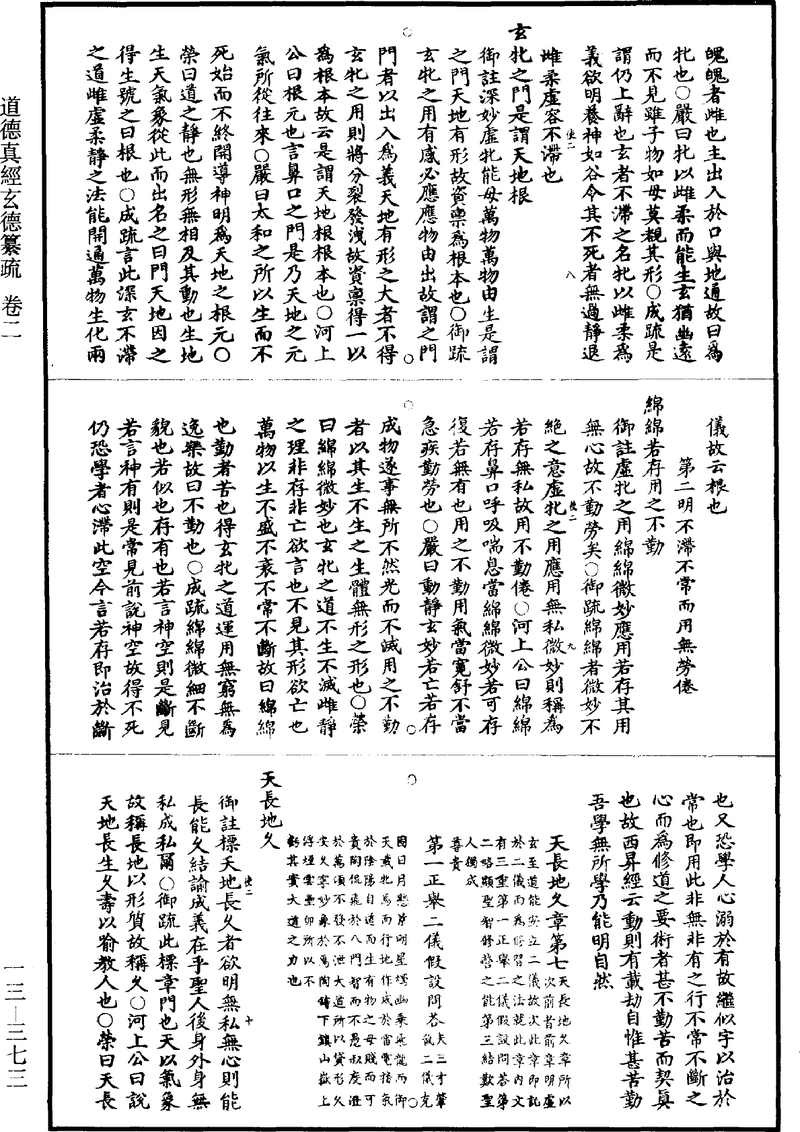 道德真經玄德纂疏 卷二
一三—三七三
魄魄者雌也主出入於口與地通故曰為
牝也○嚴曰牝以雌柔而能生玄猶幽遠
而不見雖子物如母莫覩其形○成疏是
謂仍上辭也玄者不滯之名牝以雌柔為
義欲明養神如谷令其不死者無過靜退
雌柔虛容不滯也
玄牝之門是謂天地根
御註深妙虛牝能母萬物萬物由生是謂
之門天地有形故資稟為根本也○御疏
玄牝之用有感必應應物由出故謂之門
門者以出入為義天地有形之大者不得
玄牝之用則將分裂發洩故資稟得一以
為根本故云是謂天地根根本也○河上
公曰根元也言鼻口之門是乃天地之元
氣所從往來○嚴曰太和之所以生而不
死始而不終開導神明為天地之根元○
榮曰道之靜也無形無相及其動也生地
生天氣象從此而出名之曰門天地因之
得生號之曰根也○成疏言此深玄不滯
之道雌虛柔靜之法能開通萬物生化兩
儀故云根也
第二明不滯不常而用無勞倦
綿綿若存用之不勤
御註虛牝之用綿綿微妙應用若存其用
無心故不勤勞矣○御疏綿綿者微妙不
絕之意虛牝之用應用無私微妙則稱為
若存無私故用不勤倦○河上公曰綿綿
若存鼻口呼吸喘息當綿綿微妙若可存
復若無有也用之不勤用氣當寬舒不當
急疾勤勞也○嚴曰動靜玄妙若亡若存
成物遂事無所不然光而不滅用之不勤
者以其生不生之生體無形之形也○榮
曰綿綿微妙也玄牝之道不生不滅雌靜
之理非存非亡欲言也不見其形欲亡也
萬物以生不盛不衰不常不斷故曰綿綿
也勤者苦也得玄牝之道運用無窮無為
逸樂故曰不勤也○成疏綿綿微細不斷
貌也若似也存有也若言神空則是斷見
若言神有則是常見前說神空故得不死
仍恐學者心滯此空今言若存即治於斷
也又恐學人心溺於有故繼似字以治於
常也即用此非無非有之行不常不斷之
心而為修道之要術者甚不勤苦而契真
也故西昇經云動則有載劫自惟甚苦勤
吾學無所學乃能明自然
天長地久章第七 天長地久章所以次前者前章明虛
玄至道能安立二儀故次此章即託
於二儀而為修習之法就此章內文
有三重第一正舉二儀假設問答第
二略顯聖智修營之能第三結歎聖
人獨成尊貴
第一正舉二儀假設問答
天長地久
御註標天地長久者欲明無私無心則能
長能久結論成義在乎聖人後身外身無
私成私爾○御疏此標章門也天以氣象
故稱長地以形質故稱久○河上公曰說
天地長生久壽以喻教人也○榮曰天長